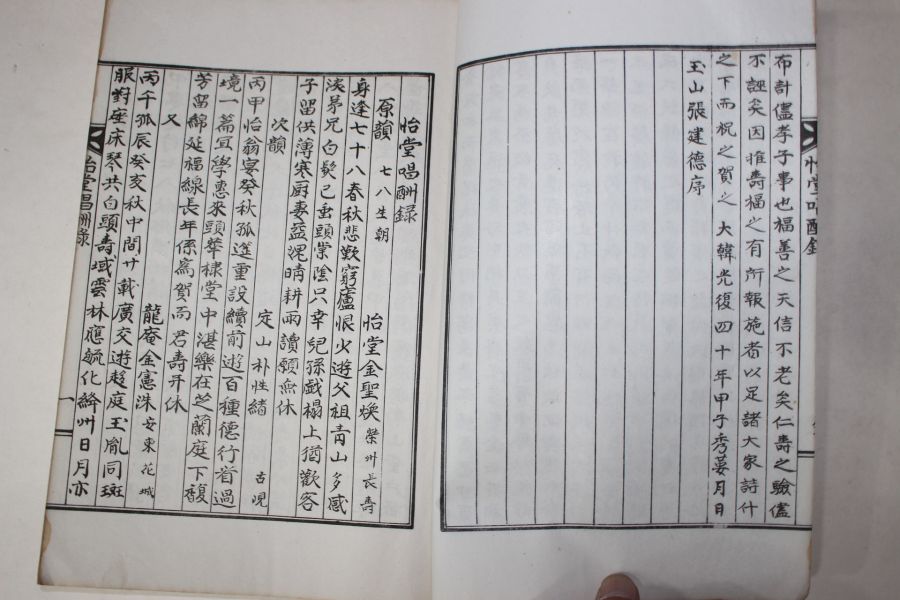 布計儘孝子事也福善之天信不老矣仁壽之驗儘
不誣矣因推壽福之有所報施者以足諸大家詩什
之下而祝之賀之 大韓光復四十年甲子秀葽月日
玉山張建德序
怡堂唱酬錄
怡堂唱酬錄
原韻 七八生朝 怡堂金聖煥 榮州長壽
身逢七十八春秋悲歎窮廬恨少遊父祖青山多感
淚弟兄白髮已垂頭棠陰只幸兒孫戱榻上猶歡客
子留供薄寒厨妻益浼晴耕雨讀願無休
次韻 定山朴性緖 古峴
丙甲怡翁宴癸秋孤筵重設續前遊百種德行省過
境一篇宜學惠來頭華棣堂中湛樂在芝蘭庭下馥
芳留綿延福線長年係寫賀而君壽幷休
又 龍庵金憲洙 安東花城
丙千孤辰癸亥秋中間廿載廣交遊趍庭玉胤同斑
服對座床琴共白頭壽域雲林應毓化絳州日月亦
怡堂唱酬錄
一